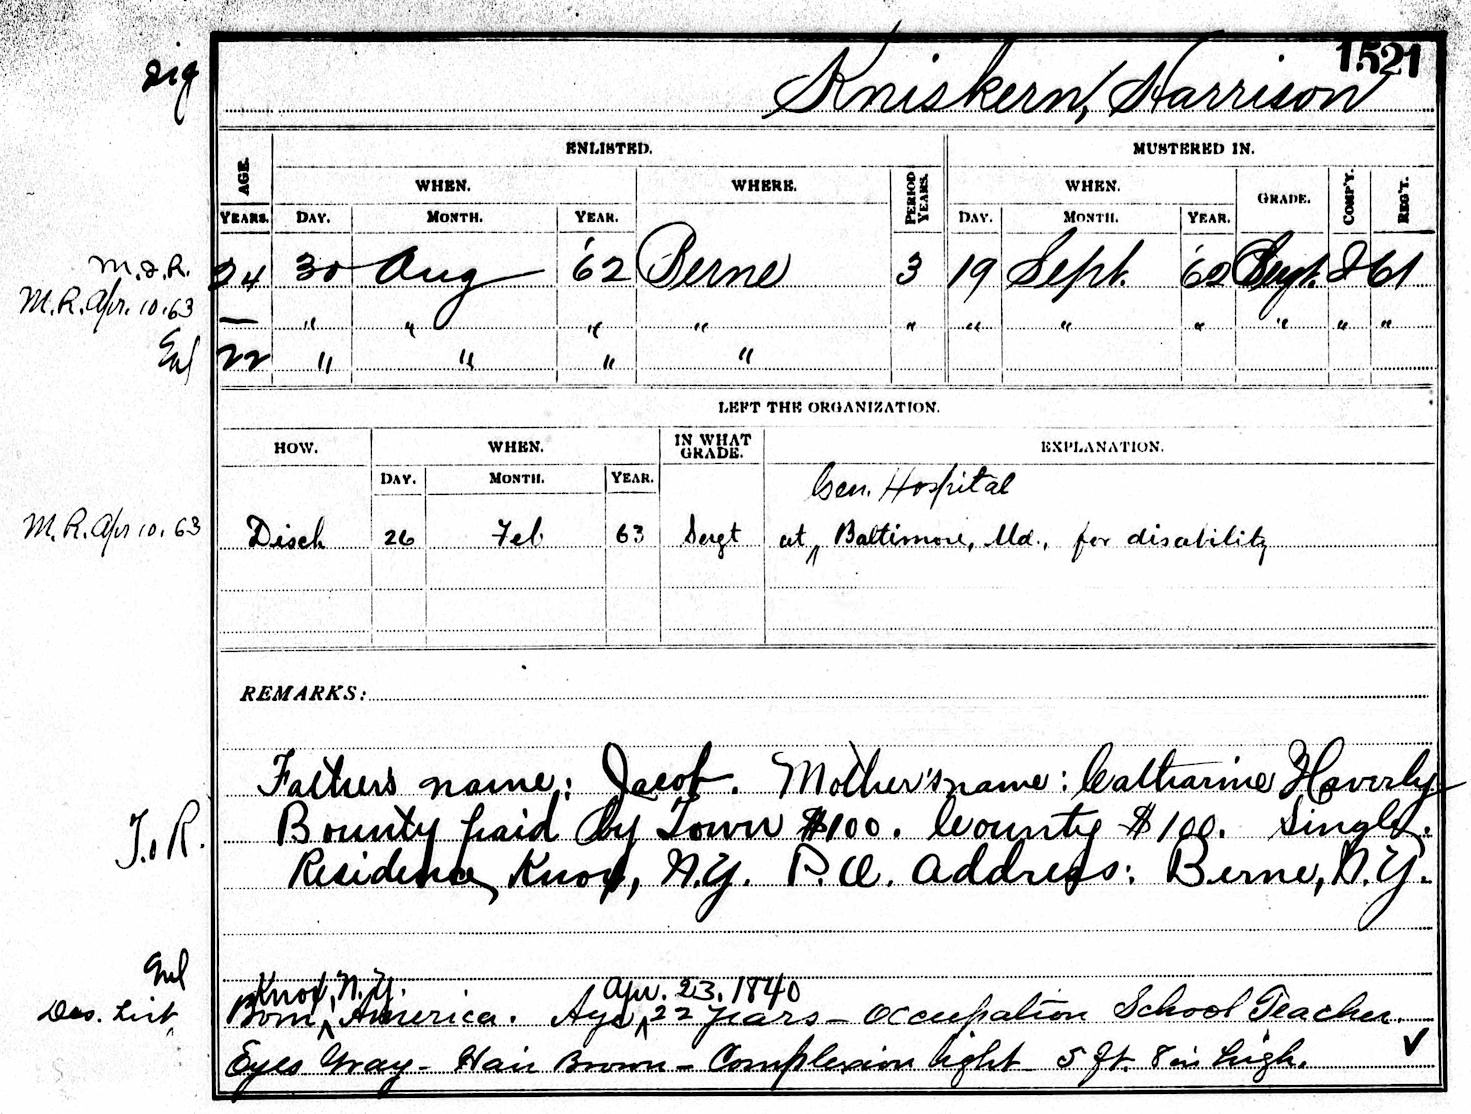 1521
sig
Kniskern, Harrison
ENLISTED. MUSTERED IN.
AGE. WHEN. WHERE. PERIOD YEARS. WHEN. GRADE. COMP'Y. REG'T.
YEARS. DAY. MONTH. YEAR. DAY. MONTH. YEAR.
M. & R. 24 30 Aug '62 Berne 3 19 Sept. '62 Sergt. D 61
M. R. Apr. 10. 63 — " " " " " " " " " " "
Enl 22 " " " "
LEFT THE ORGANIZATION.
HOW. WHEN. IN WHAT GRADE. EXPLANATION.
DAY. MONTH. YEAR.
Gen. Hospital
M. R. Apr 10. 63 Disch 26 Feb 63 Sergt at ^ Baltimore, Md., for disability
REMARKS:
Father's name: Jacob. Mother's name: Catharine Haverly
T. R. Bounty paid by Town $100. County $100. Single.
Residence, Knox, N.Y. P.O. Address: Berne, N.Y.
Enl Knox, N.Y. Apr. 23. 1840
Des. List Born ^ America. Age ^ 22 years – Occupation School Teacher.
Eyes Gray – Hair Brown – Complexion light 5 ft. 8 in high. ✓